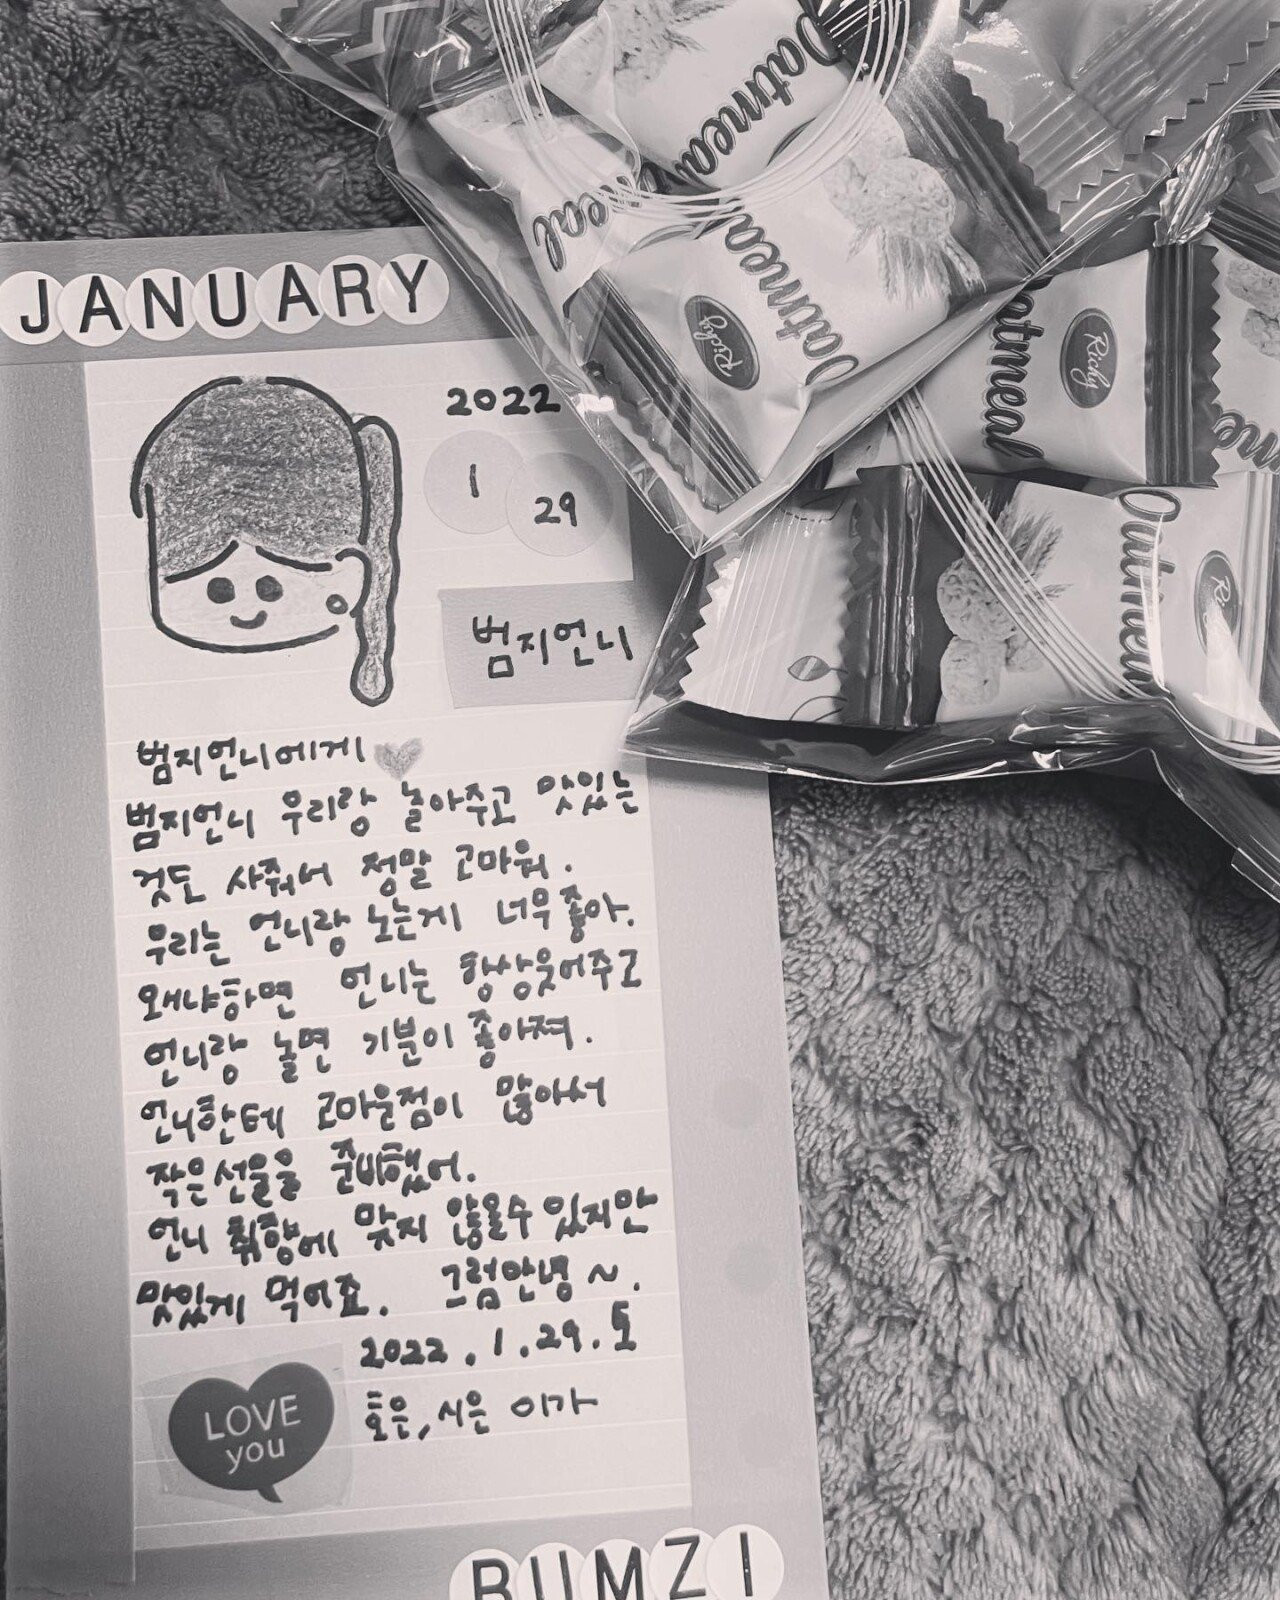 Oatmeal
Oatmeal
Richy
Oatmeal
Richy
Oatmeal
Richy
JANUARY
2022
1
29
범지언니
범지언니에게
범지언니 우리랑 놀아주고 맛있는
것도 사줘서 정말 고마워.
우리는 언니랑 노는게 너무좋아.
왜냐하면 언니는 항상웃어주고
언니랑 놀면 기분이 좋아져.
언니한테 고마운점이 많아서
작은선물을 준비했어.
언니 취향에 맞지 않을수있지만
맛있게 먹어죠. 그럼안녕~.
2022.1.29.토
LOVE
you
효은,시은 이가
BUMZI